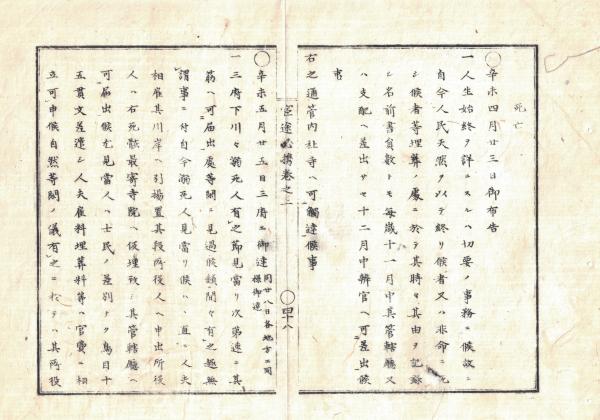 死亡
○辛未四月廿三日御布告
一人生始終ヲ詳ニスルハ切要ノ事務ニ候故ニ
自今人民天然ヲ以テ終リ候者又ハ非命ニ死
シ候者等埋葬ノ處ニ於テ其時々其由ヲ記錄
シ名前書員數トモ每歲十一月中其管轄廳又
ハ支配ヘ差出サセ十二月中辨官ヘ可差出候
事
右之通管内社寺ヘ可觸達候事
官途必携卷之二
○四十八
○辛未五月廿五日三府エ御達 同廿八日各地方エ同樣御達
一三府下川々溺死人有之節見當リ次第速ニ其
筋ヘ可届出處等閑ニ見過候類間々有之趣無
謂事ニ付自今溺死人見當リ候ハヽ直ニ人夫
相雇其川岸ヘ引揚置其段所役人ヘ申出所役
人ハ右死骸最寄寺院ヘ仮埋致シ其管轄廳ヘ
可届出候尤見當人ヘ士民ノ差別ナク鳥目十
五貫文差遣シ人夫雇料埋葬料等ハ官費ニ相
立可申候自然等閑ノ儀有之ニ於テハ其所役